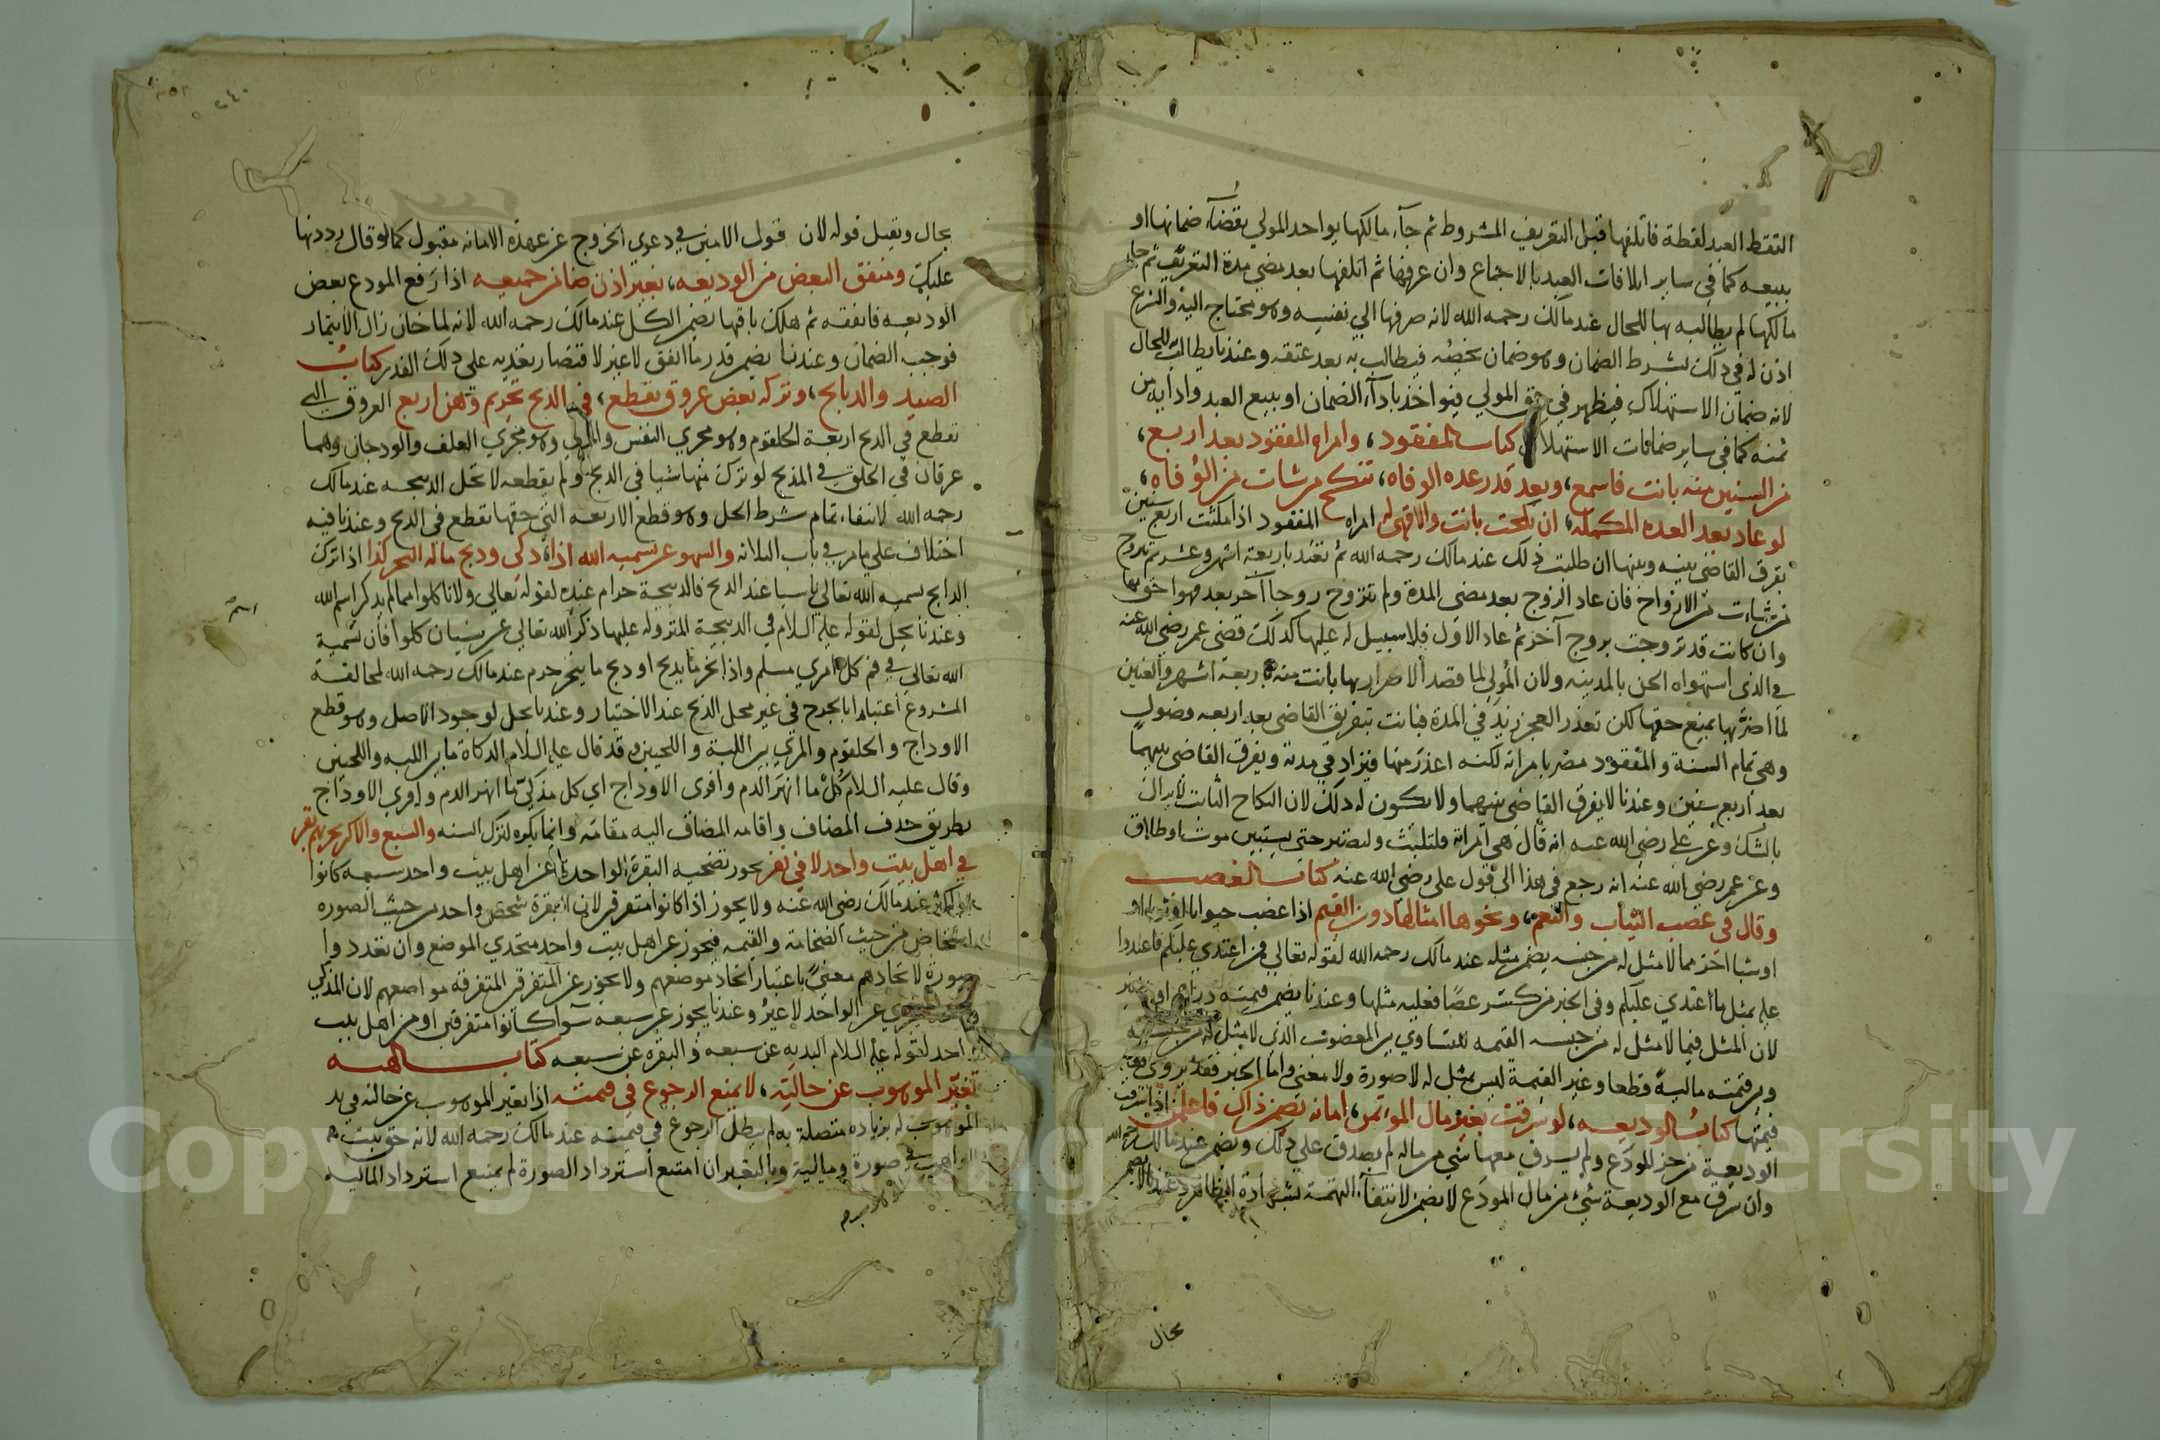 التقط العبد لقطة فاتلفها قبل التعريف المشروط ثم جآء مالكها يواخد المولي بقضآء ضمانها او
ببيعه كما في ساير اتلافات العبد بالاجماع وان عرفها ثم اتلفها بعد مضي مدة التعريف ثم جا
مالكها لم يطالبه بها للحال عند مالك رحمه الله لانه صرفها الي نفسه وهو محتاج اليه والشرع
اذن له في ذلك بشرط الضمان وهو ضمان يخصه فيطالب به بعد عتقه وعندنا يطالب للحال
لانه ضمان الاستهلاك فيظهر في حق المولي فيواخذ بادآء الضمان او ببيع العبد وادايه من
ثمنه كما في ساير ضمانات الاستهلاك كتاب المفقود، وامراه المفقود بعد اربع،
من السنين منه بانت فاسمع، وبعد قدر عده الوفاه، تنكح من شات من الوفاه،
لو عاد بعد العده المكمله، ان نكحت بانت والا فهي له امراه المفقود اذا مكثت اربع سنين
يفرق القاضي بينه وبينها ان طلبت ذلك عند مالك رحمه الله ثم تعتد باربعة اشهر وعشر ثم تزوج
من شات من الازواج فان عاد الزوج بعد مضي المدة ولم تتزوج زوجا آخر بعد فهو احق بها
وان كانت قد تزوجت بزوج آخر ثم عاد الاول فلا سبيل له عليها كذلك قضي عمر رضي الله عنه
في الذي استهواه الجن بالمدينه ولان المولي لما قصد الاضرار بها بانت منه باربعة اشهر والعنين
لما اضر بها بمنع حقها لكن تعذر العجز زيد في المدة فبانت بتفريق القاضي بعد اربعه فصول
وهي تمام السنة والمفقود مضر بامراته لكنه اعذر منها فيزاد في مدته ويفرق القاضي بينهما
بعد اربع سنين وعندنا لا يفرق القاضي بينهما ولا يكون له ذلك لان النكاح الثابت لا يزال
بالشك وعن علي رضي الله عنه انه قال هي امراة فلتلبث ولتصبر حتي يستبين موت او طلاق
وعن عمر رضي الله عنه انه رجع في هذا الي قول علي رضي الله عنه كتاب الغصب
وقال في غصب الثياب والنعم، ونحوها امثالها دون القيم اذا غصب حيوانا او ثوبا او
او شيا آخر مما لا مثل له من جنسه يضمن مثله عند مالك رحمه الله لقوله تعالي فمن اعتدي عليكم فاعتدوا
عليه بمثل ما اعتدي عليكم وفي الخبر من كسر عصا فعليه مثلها وعندنا يضمن قيمته دراهم او
لان المثل فيما لا مثل له من جنسه القيمه للتساوي بين المغصوب الذي لا مثل له من جنسه
وبين قيمته مالية قطعا وغير القيمة ليس بمثل له لا صورة ولا معني واما الخبر فقد يروي فعليه
قيمتها كتاب الوديعه، لو سرقت بغير مال الموتمن، امانه يضمن ذاك فاعلمن اذا سرقت
الوديعة من حرز المودع ولم يسرق معها شي من ماله لم يصدق علي ذلك ويضمن عند مالك رحمه الله
وان سرق مع الوديعة شيء من مال المودع لا يضمن لانتفاء التهمة بشهادة الظاهر وعندنا لا يضمن
بحال
٢٤٠
بحال ويقبل قوله لان قول الامين في دعوي الخروج عن عهدة الامانه مقبول كما لو قال رددتها
عليك ومنفق البعض من الوديعه، بغير اذن ضامن جميعه اذا رفع المودع بعض
الوديعه فانفقه ثم هلك باقيها يضمن الكل عند مالك رحمه الله لانه لما خان زال الايتمان
فوجب الضمان وعندنا يضمن قدر ما انفق لا غير لاقتصار تعديه علي ذلك القدر كتاب
الصيد والذبايح، وتركه بعض عروق تقطع، في الذبح تحريم وهن اربع العروق التي
تقطع في الذبح اربعة الحلقوم وهو مجري النفس والمري وهو مجري العلف والودجان وهما
عرقان في الحلق في المذبح لو ترك منها شيا في الذبح ولم يقطعه لا تحل الذبيحه عند مالك
رحمه الله لانتفاء تمام شرط الحل وهو قطع الاربعه التي حقها تقطع في الذبح وعندنا فيه
اختلاف علي ما مر في باب الثلاثه والسهو عن تسميه الله اذا ذكي وذبح ماله النحر كذا اذا ترك
الذابح تسميه الله تعالي ناسيا عند الذبح فالذبيحة حرام عنده لقوله تعالي ولا تاكلوا مما لم يذكر اسم الله
وعندنا يحل لقوله عليه السلام في الذبيحة المتروك عليها ذكر الله تعالي عن نسيان كلوا فان تسمية
الله تعالي في فم كل امري مسلم واذا نحر ما يذبح او ذبح ما ينحر حرم عند مالك رحمه الله لمخالفة
المشروع اعتبارا بالجرح في غير محل الذبح عند الاختيار وعندنا يحل لوجود الاصل وهو قطع
الاوداج والحلقوم والمري بين اللبة واللحيين وقد قال عليه السلام الذكاة ما بين اللبه واللحيين
وقال عليه السلام كل ما انهر الدم وافري الاوداج اي كل مذكي ما انهر الدم وافري الاوداج
بطريق حذف المضاف واقامه المضاف اليه مقامه وانما يكره لترك السنه والسبع والاكثر يجزيهم بقر
في اهل بيت واحد لا في نفر يجوز تضحيه البقرة الواحدة عن اهل بيت واحد سبعه كانوا
او اكثر عند مالك رضي الله عنه ولا يجوز اذا كانوا متفرقين لان البقرة شخص واحد من حيث الصوره
اشخاص من حيث الضخامة والقيمه فيجوز عن اهل بيت واحد متحدي الموضع وان تعددوا
صورة لاتحادهم معني باعتبار اتحاد موضعهم ولا يجوز عن المتفرقين المتفرقة مواضعهم لان المذكي
يجزي عن الواحد لا غير وعندنا يجوز عن سبعه سوآ كانوا متفرقين او من اهل بيت
واحد لقوله عليه السلام البدنه عن سبعه والبقره عن سبعه كتاب الهبه
تغير الموهوب عن حالته، لا يمنع الرجوع في قيمته اذا تغير الموهوب عن حالته في يد
الموهوب له بزيادة متصلة به لم يبطل الرجوع في قيمته عند مالك رحمه الله لانه حق ثبت
للواهب في صورة ومالية وبالتغير ان امتنع استرداد الصورة لم يمتنع استرداد الماليه